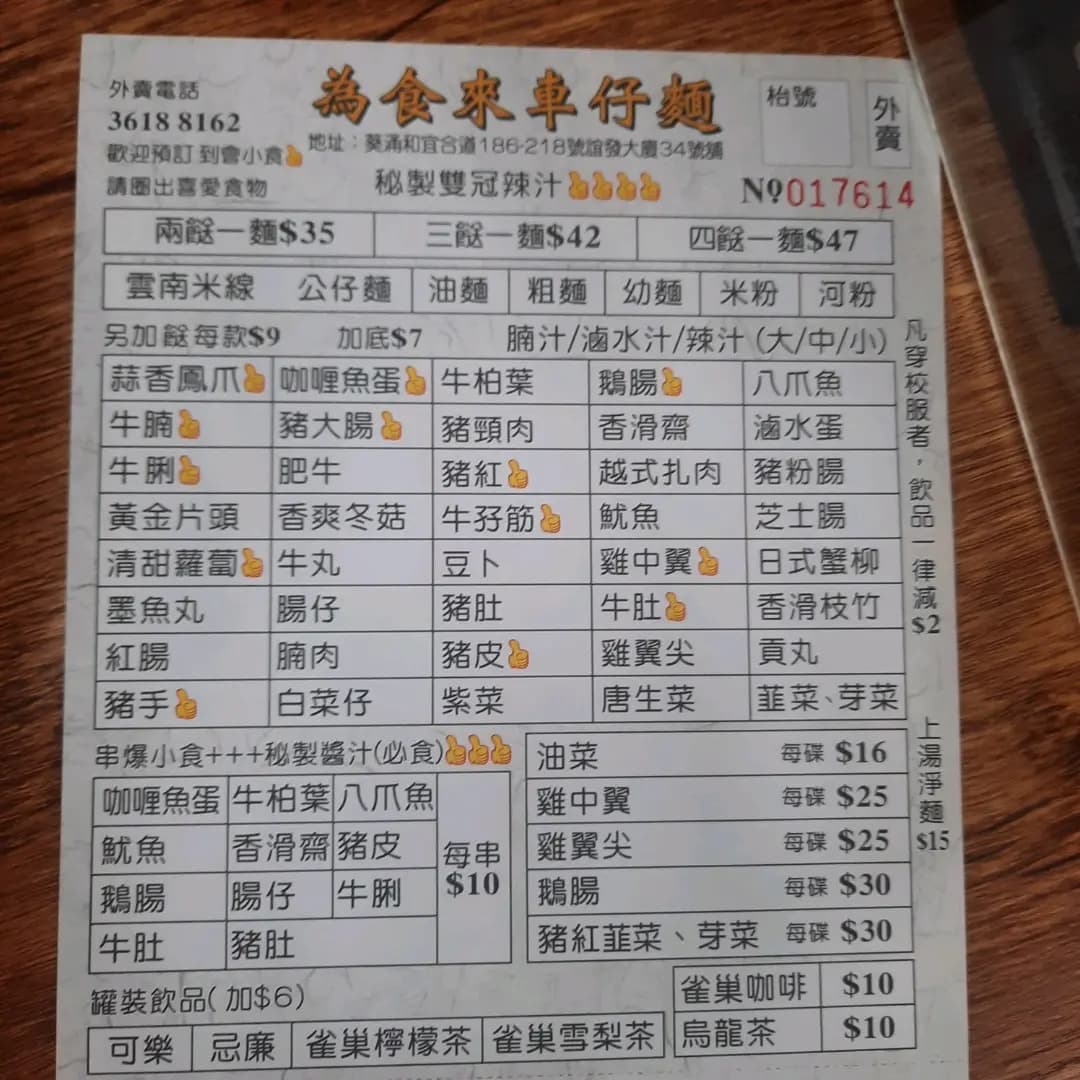 外賣電話
3618 8162
歡迎預訂 到會小食
請圈出喜愛食物
為食來車仔麵
地址：葵涌和宜合道186-218號誼發大廈34號舖
秘製雙冠辣汁
枱號
外賣
№017614
兩餸一麵$35 三餸一麵$42 四餸一麵$47
雲南米線 公仔麵 油麵 粗麵 幼麵 米粉 河粉
另加餸每款$9 加底$7 腩汁/滷水汁/辣汁 (大/中/小)
蒜香鳳爪 咖喱魚蛋 牛柏葉 鵝腸 八爪魚
牛腩 豬大腸 豬頸肉 香滑齋 滷水蛋
牛脷 肥牛 豬紅 越式扎肉 豬粉腸
黃金片頭 香爽冬菇 牛孖筋 魷魚 芝士腸
清甜蘿蔔 牛丸 豆卜 雞中翼 日式蟹柳
墨魚丸 腸仔 豬肚 牛肚 香滑枝竹
紅腸 腩肉 豬皮 雞翼尖 貢丸
豬手 白菜仔 紫菜 唐生菜 韮菜、芽菜
凡穿校服者，飲品一律減$2
串爆小食+++秘製醬汁(必食)
咖喱魚蛋 牛柏葉 八爪魚
魷魚 香滑齋 豬皮
鵝腸 腸仔 牛脷
牛肚 豬肚
每串
$10
油菜 每碟 $16
雞中翼 每碟 $25
雞翼尖 每碟 $25
鵝腸 每碟 $30
豬紅韮菜、芽菜 每碟 $30
上湯淨麵$15
罐裝飲品( 加$6)
可樂 忌廉 雀巢檸檬茶 雀巢雪梨茶
雀巢咖啡 $10
烏龍茶 $10